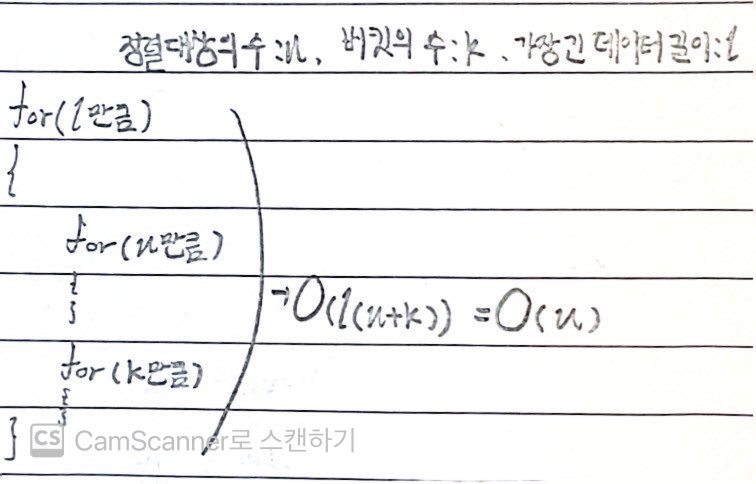 정렬대상의 수:n, 버킷의 수:k, 가장 긴 데이터 길이:l
for(l만큼)
{
for(n만큼)
{
}
→O(l(n+k)) = O(n)
for(k만큼)
{
}
}
CS CamScanner로 스캔하기